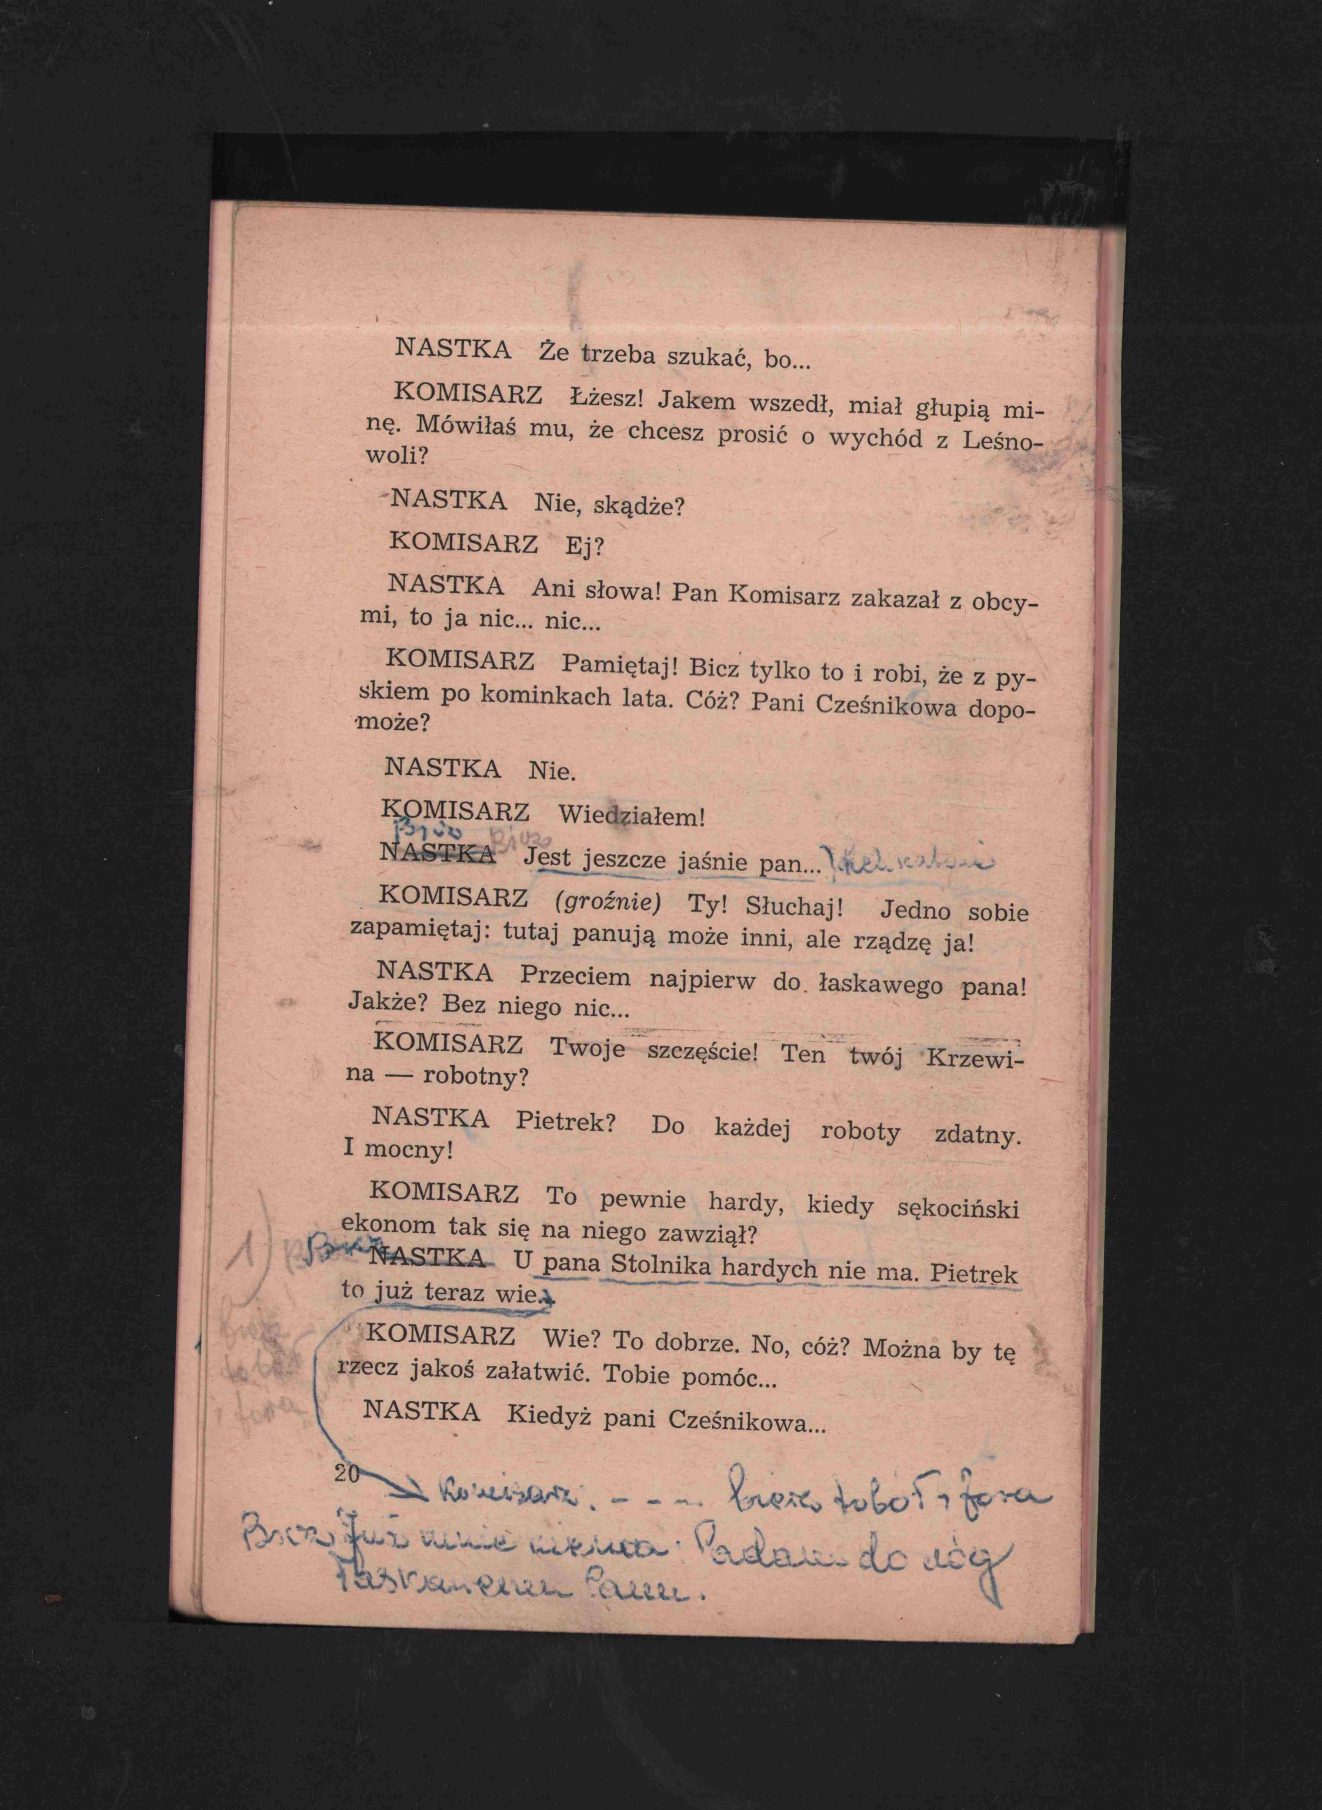 NASTKA Że trzeba szukać, bo...
KOMISARZ Łżesz! Jakem wszedł, miał głupią mi-
nę. Mówiłaś mu, że chcesz prosić o wychód z Leśno-
woli?
NASTKA Nie, skądże?
KOMISARZ Ej?
NASTKA Ani słowa! Pan Komisarz zakazał z obcy-
mi, to ja nic... nic...
KOMISARZ Pamiętaj! Bicz tylko to i robi, że z py-
skiem po kominkach lata. Cóż? Pani Cześnikowa dopo-
może?
NASTKA Nie.
KOMISARZ Wiedziałem!
NASTKA Jest jeszcze jaśnie pan...
KOMISARZ (groźnie) Ty! Słuchaj! Jedno sobie
zapamiętaj: tutaj panują może inni, ale rządzę ja!
NASTKA Przeciem najpierw do łaskawego pana!
Jakże? Bez niego nic...
KOMISARZ Twoje szczęście! Ten twój Krzewi-
na — robotny?
NASTKA Pietrek? Do każdej roboty zdatny.
I mocny!
KOMISARZ To pewnie hardy, kiedy sękociński
ekonom tak się na niego zawziął?
1)
NASTKA U pana Stolnika hardych nie ma. Pietrek
to już teraz wie...
KOMISARZ Wie? To dobrze. No, cóż? Można by tę
rzecz jakoś załatwić. Tobie pomóc...
NASTKA Kiedyż pani Cześnikowa...
20
Komisarz: - - - . bierz toboł i fora
Bicz Już mnie niema. Padam do nóg
Łaskawemu Panu.